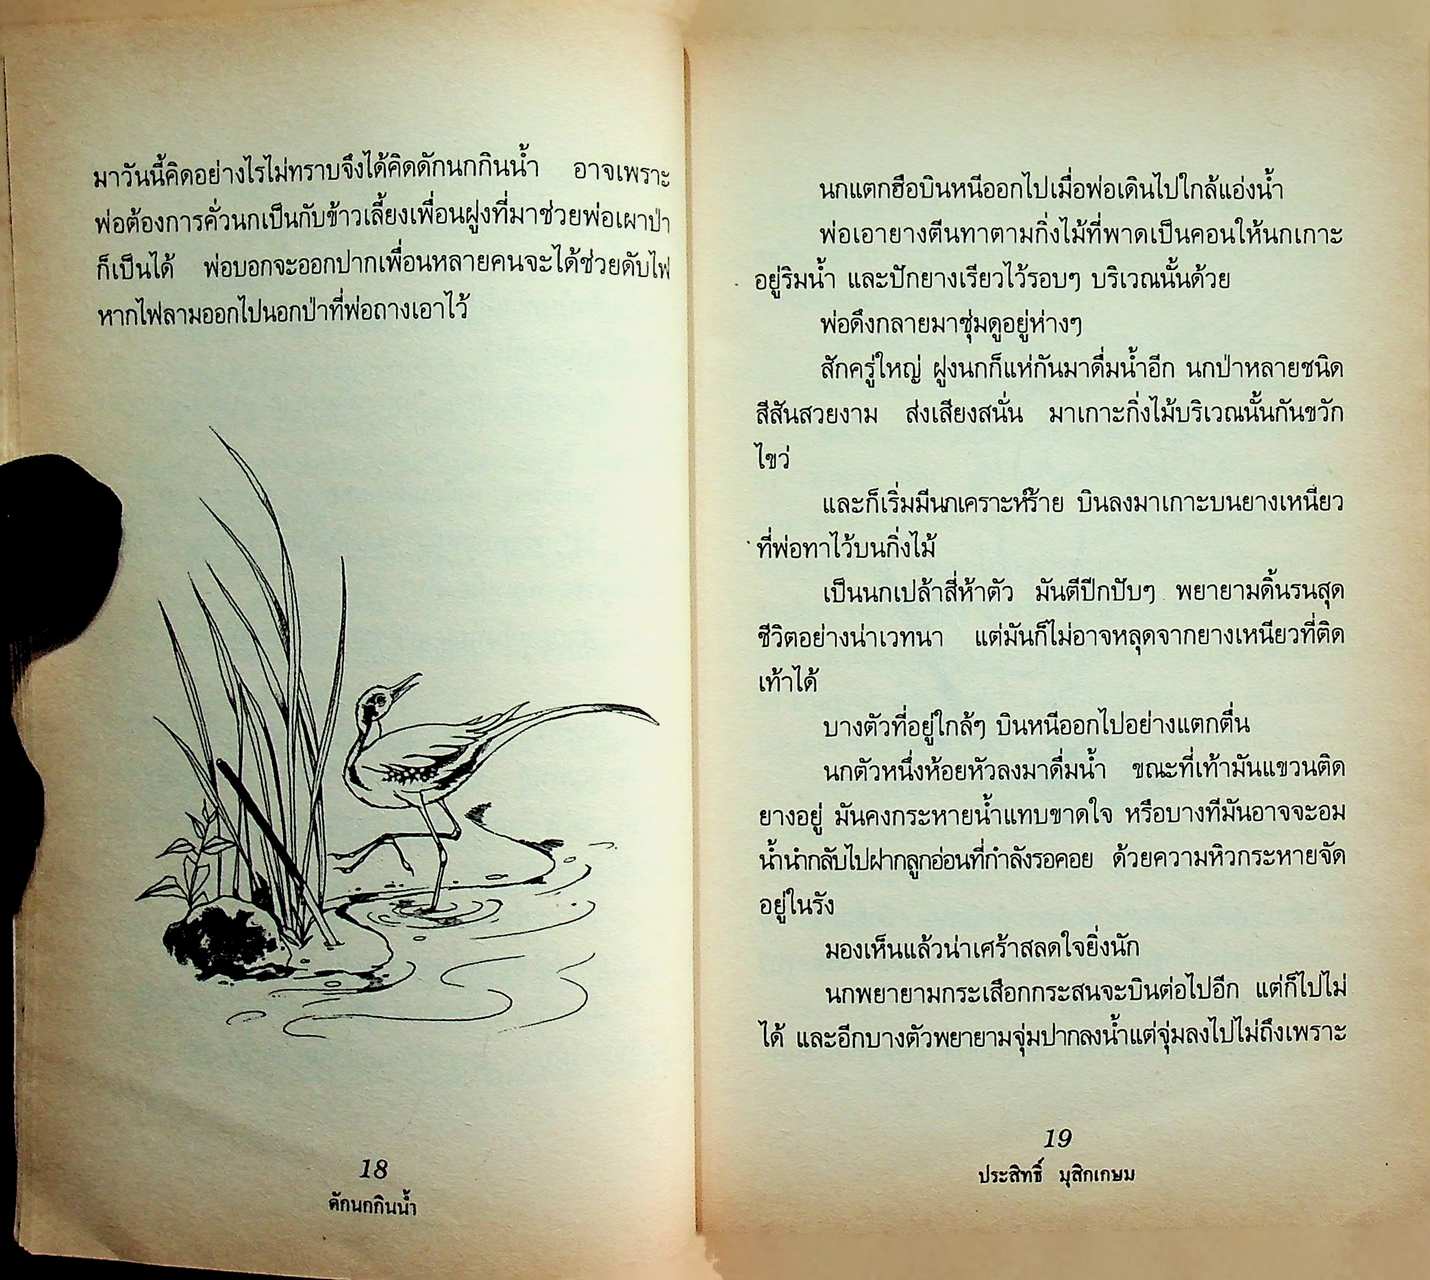 มาวันนี้คิดอย่างไรไม่ทราบจึงได้คิดดักนกกินน้ำ อาจเพราะ
พ่อต้องการคั่วนกเป็นกับข้าวเลี้ยงเพื่อนฝูงที่มาช่วยพ่อเผาป่า
ก็เป็นได้ พ่อบอกจะออกปากเพื่อนหลายคนจะได้ช่วยดับไฟ
หากไฟลามออกไปนอกป่าที่พ่อถางเอาไว้
18
ดักนกกินน้ำ
นกแตกฮือบินหนีออกไปเมื่อพ่อเดินไปใกล้แอ่งน้ำ
พ่อเอายางตีนทาตามกิ่งไม้ที่พาดเป็นคอนให้นกเกาะ
อยู่ริมน้ำ และปักยางเรียวไว้รอบๆ บริเวณนั้นด้วย
พ่อดึงกลายมาซุ่มดูอยู่ห่างๆ
สักครู่ใหญ่ ฝูงนกก็แห่กันมาดื่มน้ำอีก นกป่าหลายชนิด
สีสันสวยงาม ส่งเสียงสนั่น มาเกาะกิ่งไม้บริเวณนั้นกันขวัก
ไขว่
และก็เริ่มมีนกเคราะห์ร้าย บินลงมาเกาะบนยางเหนียว
ที่พ่อทาไว้บนกิ่งไม้
เป็นนกเปล้าสี่ห้าตัว มันตีปีกปับๆ พยายามดิ้นรนสุด
ชีวิตอย่างน่าเวทนา แต่มันก็ไม่อาจหลุดจากยางเหนียวที่ติด
เท้าได้
บางตัวที่อยู่ใกล้ๆ บินหนีออกไปอย่างแตกตื่น
นกตัวหนึ่งห้อยหัวลงมาดื่มน้ำ ขณะที่เท้ามันแขวนติด
ยางอยู่ มันคงกระหายน้ำแทบขาดใจ หรือบางทีมันอาจจะอม
น้ำนำกลับไปฝากลูกอ่อนที่กำลังรอคอย ด้วยความหิวกระหายจัด
อยู่ในรัง
มองเห็นแล้วน่าเศร้าสลดใจยิ่งนัก
นกพยายามกระเสือกกระสนจะบินต่อไปอีก แต่ก็ไปไม่
ได้ และอีกบางตัวพยายามจุ่มปากลงน้ำแต่จุ่มลงไปไม่ถึงเพราะ
19
ประสิทธิ์ มุสิกเกษม